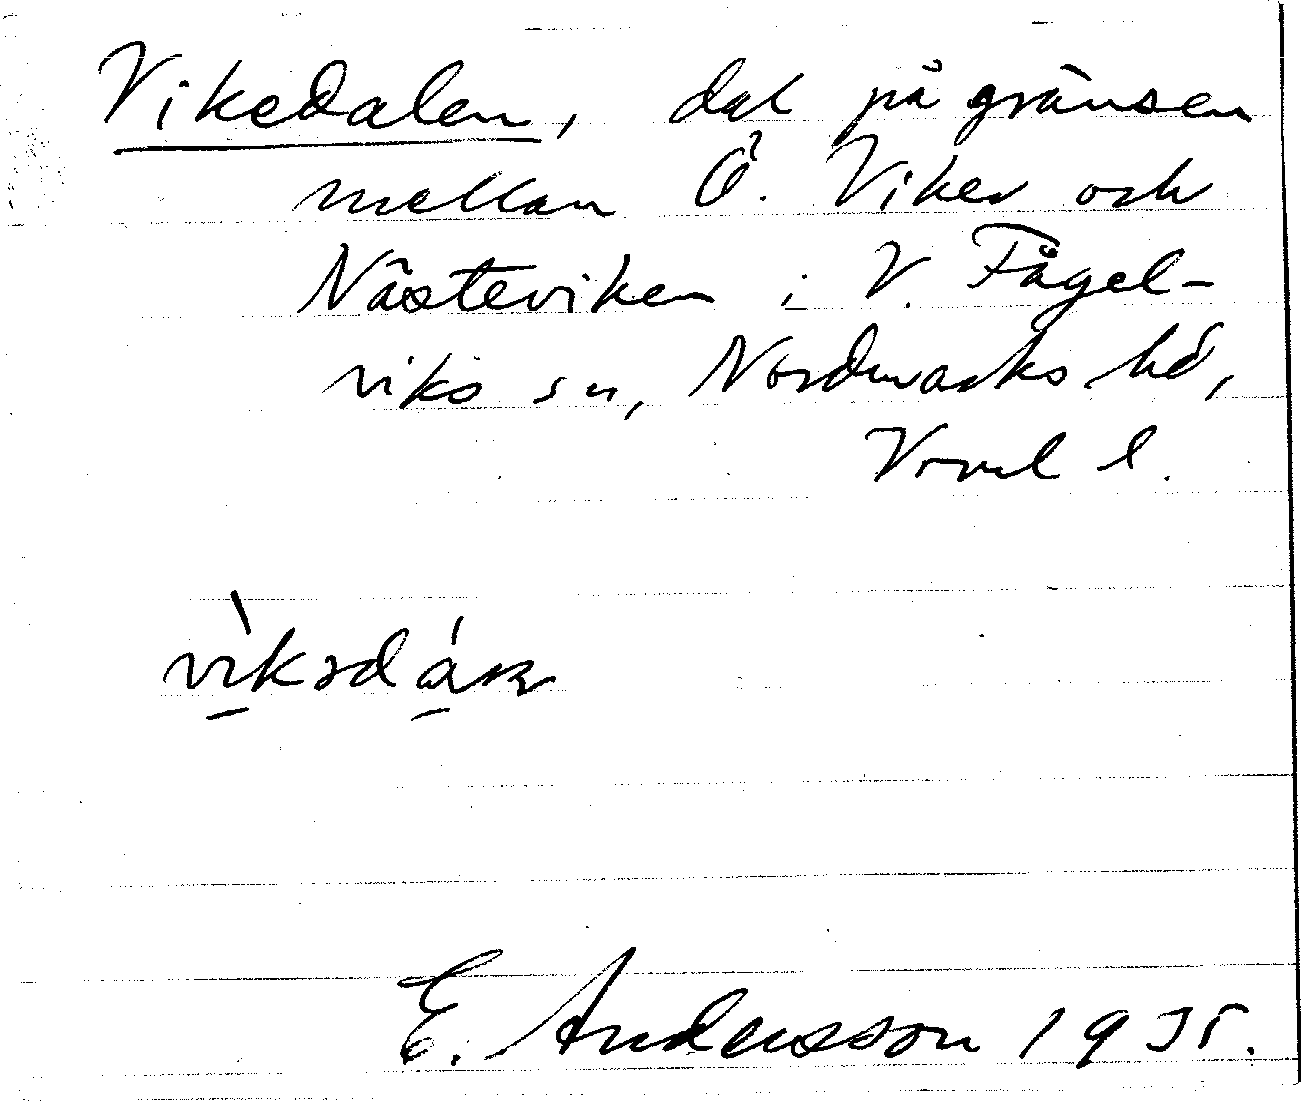 Vikedalen, dal på gränsen
mellan Ö. Viker och
Nästeviken i V. Fågel-
viks sn, Nordmarks hd,
Vrml l.
E. Andersson 1935.